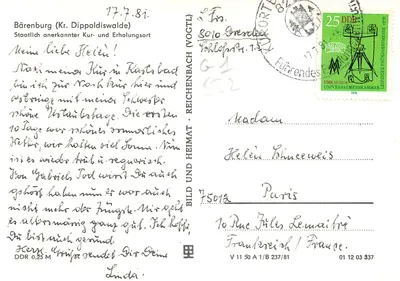 17.7.81.
Bärenburg (Kr. Dippoldiswalde)
Staatlich anerkannter Kur- und Erholungsort
Meine liebe Helen!
Nach meiner Kur in Karlsbad
bin ich zur Nachkur hier und
verbringe mit meiner Schwester
schöne Urlaubstage. Die ersten
10 Tage war schönes sommerliches
Wetter, wir hatten viel Sonne. Nun
ist es wieder trüb u. regnerisch.
Von Gabriels Tod wirst Du auch
gehört haben nun er war auch
nicht mehr der Jüngste. Mir geht
es altersmäßig ganz gut. Ich hoffe,
Du bist auch gesund
Herzl. Grüße sendet Dir Deine
Linda.
DDR 0,25 M
BILD UND HEIMAT · REICHENBACH (VOGTL)
8010 Dresden
KURORT
Führendes
25 DDR
Madame
Helen
75012 Paris
10 Rue Jules Lemaître
Frankreich / France.
V 11 50 A 1/B 237/81
01 12 03 337